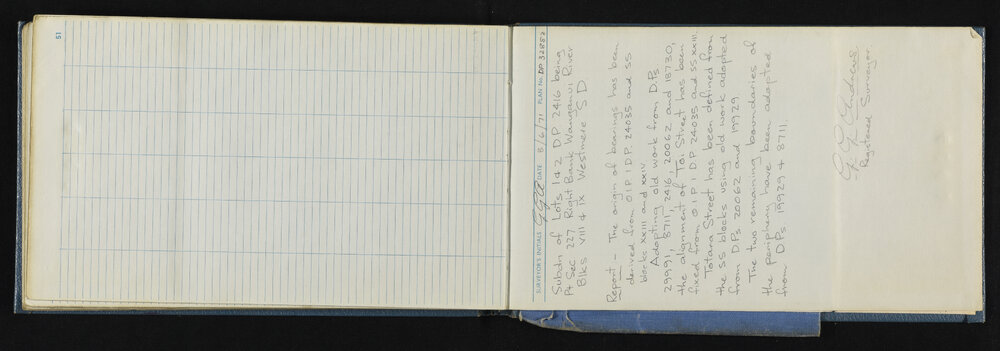 51
SURVEYOR'S INITIALS GGA DATE 3/6/71 PLAN No. DP 32882
Subdn of Lots 1 & 2 DP 2416 being
Pt Sec 227 Right Bank Wanganui River
Blks VIII & IX Westmere S D
Report - The origin of bearings has been
derived from OIP I DP 24035 and SS
blocks XXIII and XXIV.
Adopting old work from DPs
29991, 8711, 2416, 20062 and 18730,
the alignment of Toi Street has been
fixed from OIP I DP 24035 and SS XXIII.
Totara Street has been defined from
the SS blocks using old work adopted
from DPs 20062 and 19929
The two remaining boundaries of
the periphery have been adopted
from DPs 19929 & 8711.
G G Andrews
Registered Surveyor.